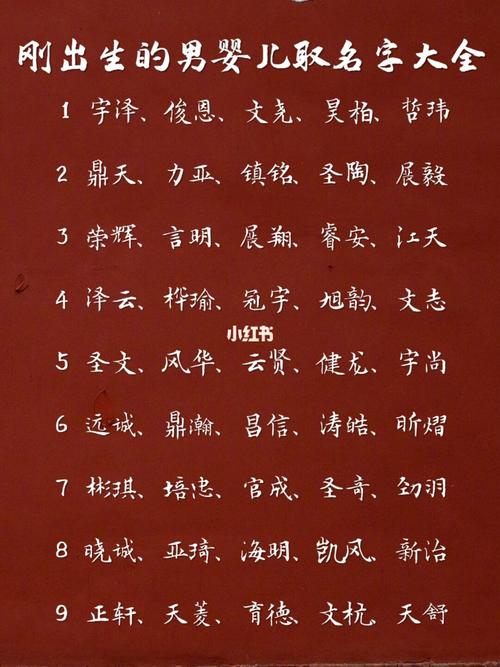 刚出生的男婴儿取名字大全
1 宇泽、俊恩、文尧、昊柏、哲玮
2 鼎天、力亚、镇铭、圣陶、展毅
3 荣辉、言明、展翔、睿安、江天
4 泽云、桦瑜、冠宇、旭韵、文志
小红书
5 圣文、风华、云贤、健龙、宇尚
6 远诚、鼎瀚、昌信、涛皓、昕熠
7 彬琪、培忠、官成、圣奇、劲羽
8 晓诚、亚琦、海明、凯风、新治
9 正轩、天菱、育德、文杭、天舒